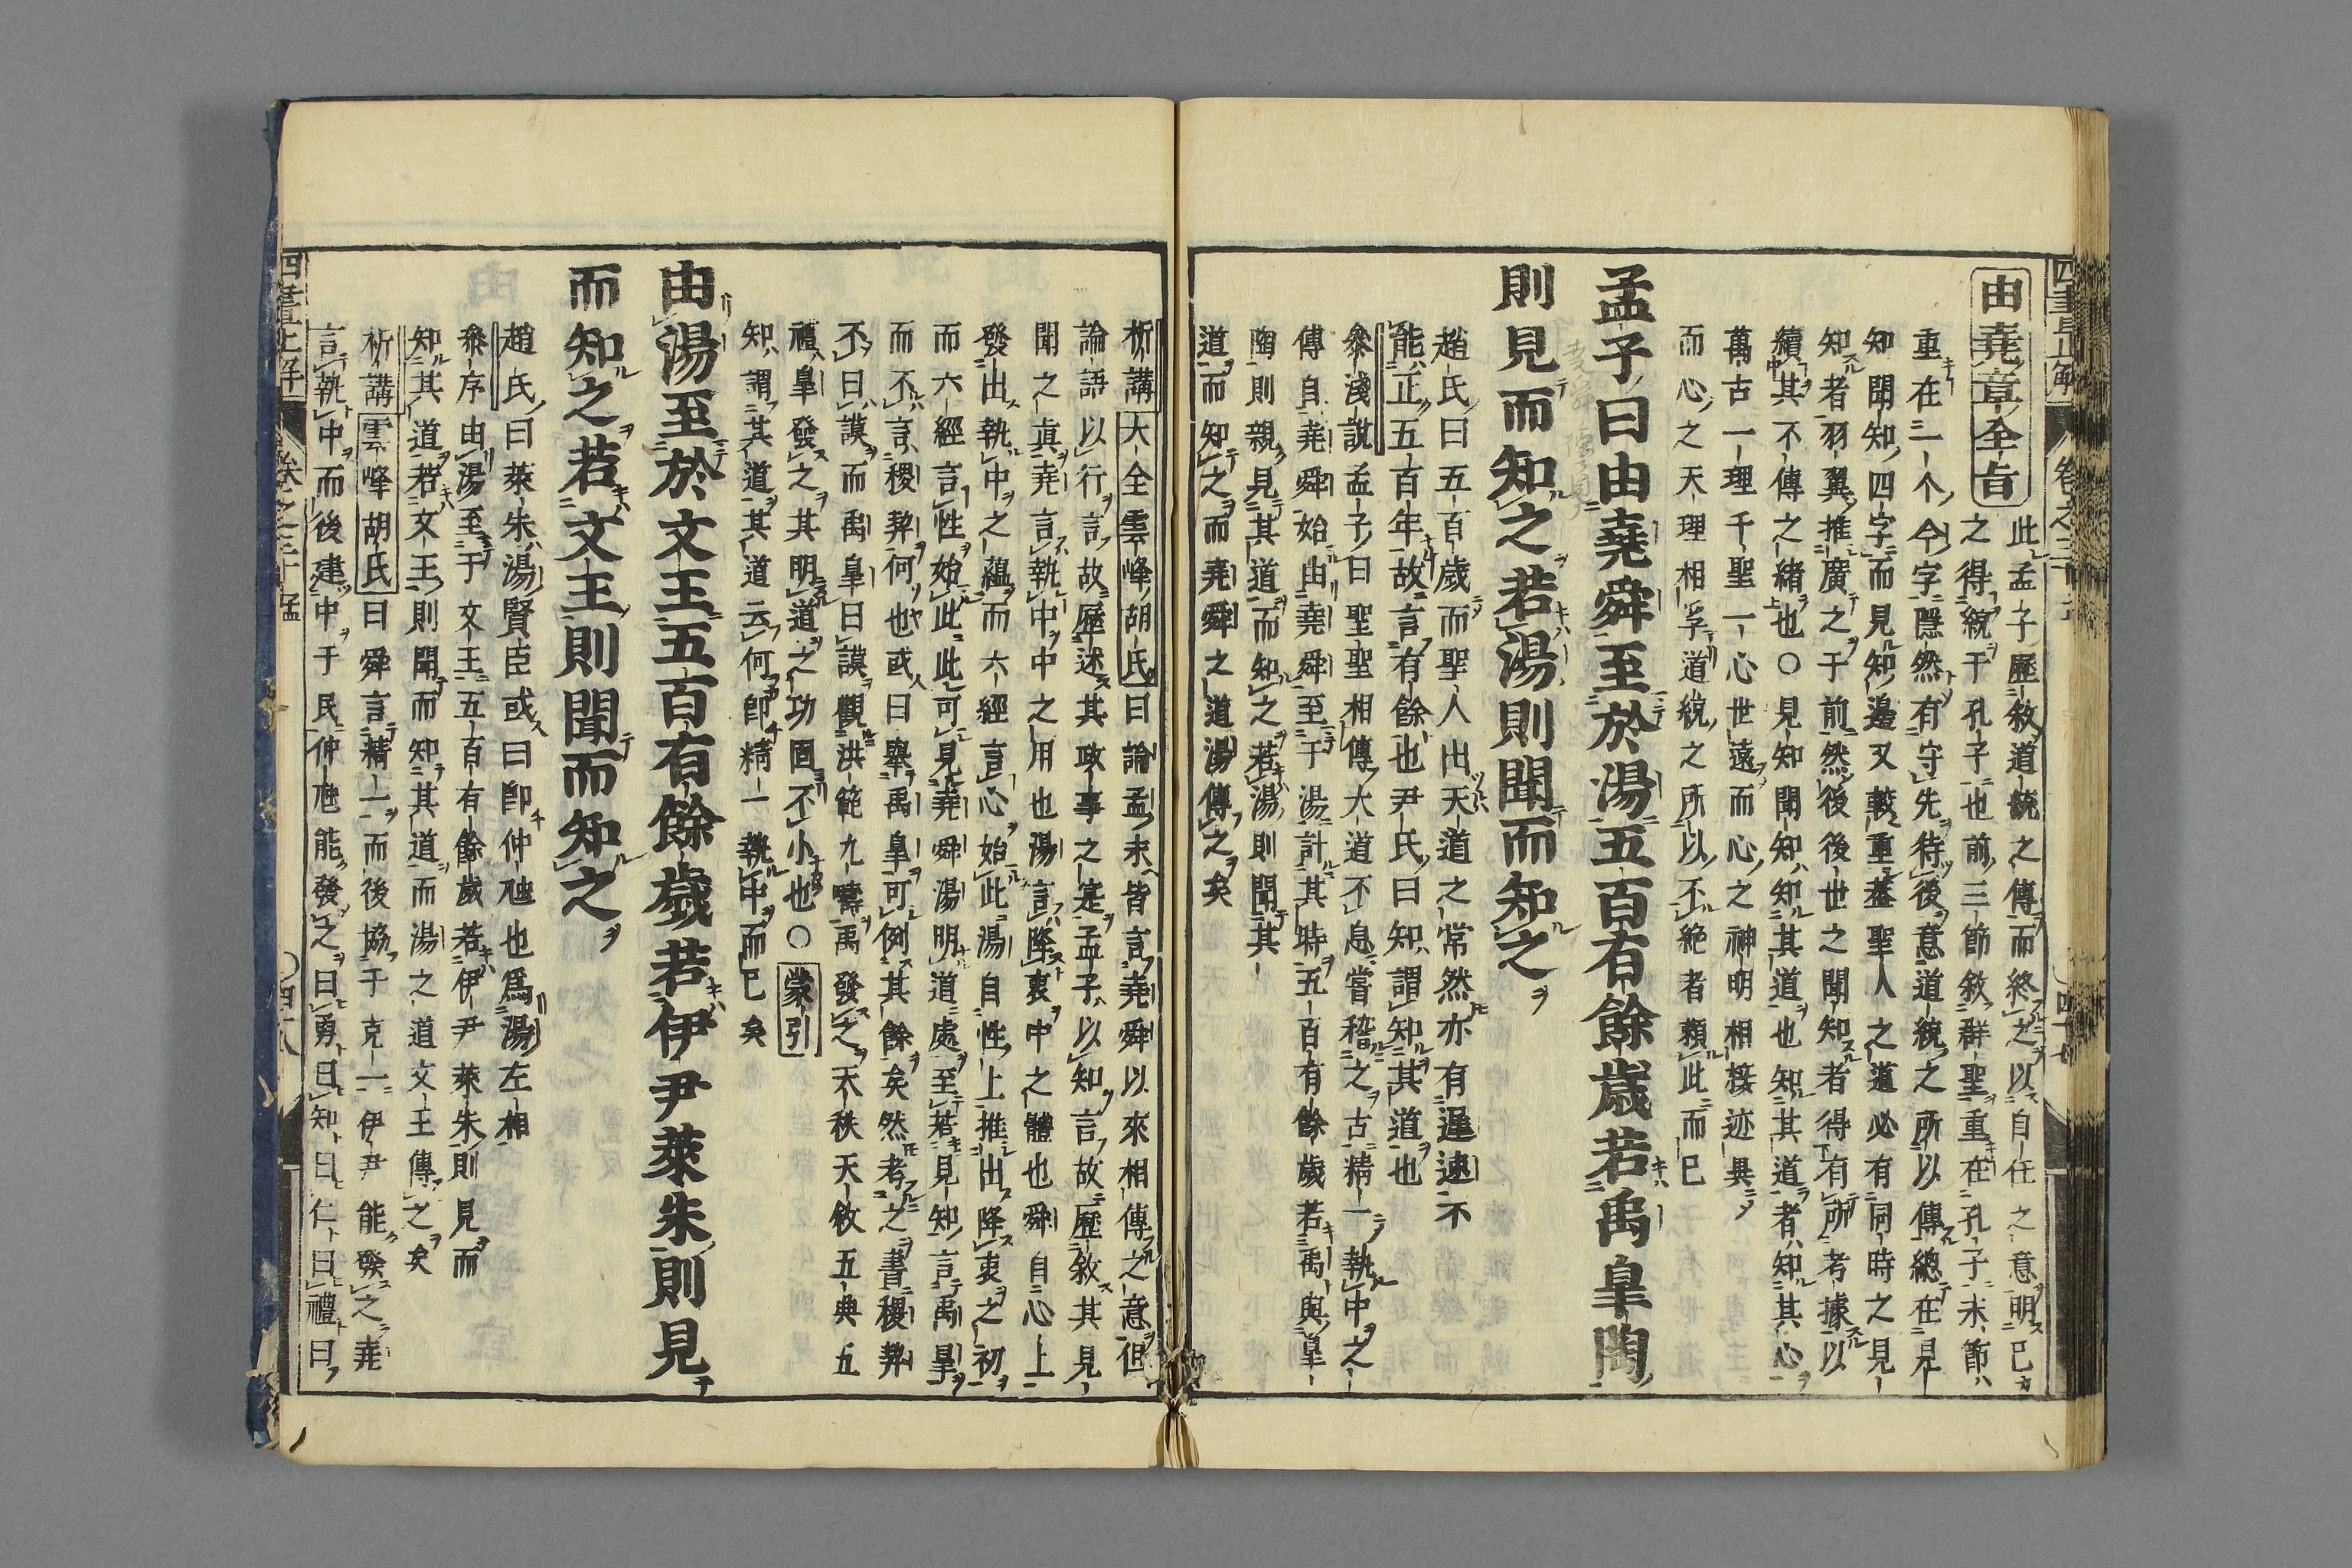 由堯章全旨
此孟子歷敘道統之傳而終之以自任之意明已
之得統于孔子也前三節敘群聖重在孔子末節
重在二个今字隱然有守先待後意道統之所以傳總在見
知聞知四字而見知邊又較重蓋聖人之道必有同時之見
知者羽翼推廣之于前然後後世之聞知者得有所考據以
續其不傳之緒也〇見知聞知知其道也知其道者知其心
萬古一理千聖一心世遠而心之神明相接迹異
而心之天理相孚道統之所以不絕者賴此而已
孟子曰由堯舜至於湯五百有餘歲若禹皐陶
則見而知之若湯則聞而知之
趙氏曰五百歲而聖人出天道之常然亦有遲速不
能正五百年故言有餘也尹氏曰知謂知其道也
參淺說孟子曰聖聖相傳大道不息嘗稽之古精一執中之
傳自堯舜始由堯舜至于湯計其時五百有餘歲若禹與皐
陶則親見其道而知之若湯則聞其
道而知之而堯舜之道湯傳之矣
析講大全雲峰胡氏曰論孟末皆言堯舜以來相傳之意但
論語以行言故歷述其政事之寔孟子以知言故歷敘其見
聞之眞堯言執中中之用也湯言降衷中之體也舜自心上
發出執中之蘊而六經言心始此湯自性上推出降衷之初
而六經言性始此此可見堯舜湯明道處至若見知言禹皐
而不言稷契何也或曰舉禹皐可例其餘矣然考之書稷契
不曰謨而禹皐曰謨觀洪範九疇禹發之天秩天敘五典五
禮皐發之其明道之功固不小也〇蒙引
知謂其道其道云何卽精一執中而已矣
由湯至於文王五百有餘歲若伊尹萊朱則見
而知之若文王則聞而知之
趙氏曰萊朱湯賢臣或曰卽仲虺也爲湯左相
參序由湯至于文王五百有餘歲若伊尹萊朱則見而
知其道若文王則聞而知其道而湯之道文王傳之矣
析講雲峰胡氏曰舜言精一而後協于克一伊尹能發之堯
言執中而後建中于民仲虺能發之曰勇曰知曰仁曰禮曰